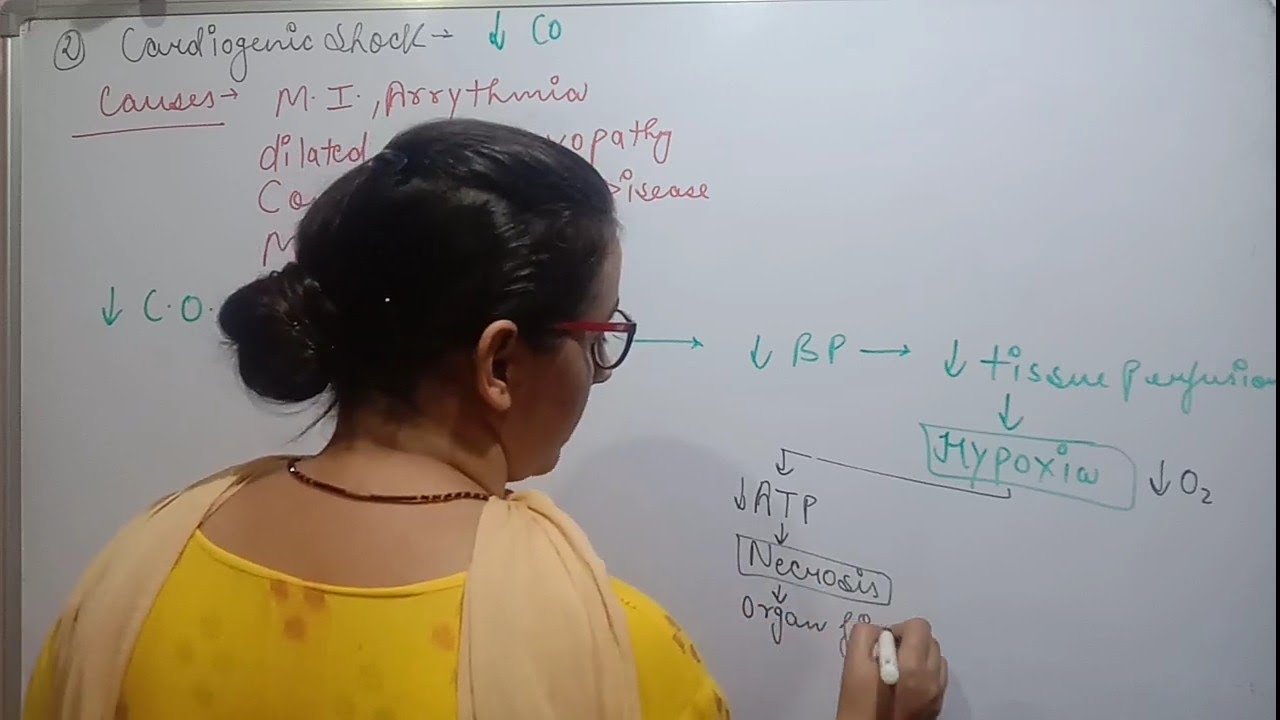 ② Cardiogenic Shock → ↓ CO
Causes → M.I., Arrythmia
dilated
Disease
↓ C.O. → ↓ BP → ↓ tissue perfusion
↓
Hypoxia ↓ O₂
↓ ATP
↓
Necrosis
↓
Organ